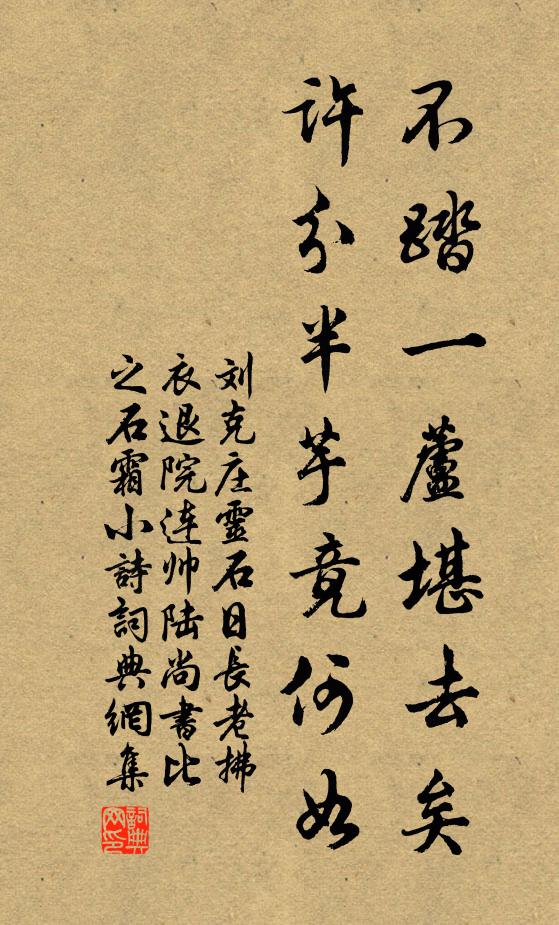 不踏一蘆堪去矣
許分半芋竟何如
刘克庄靈石日長老拂
衣退院连帅陆尚書比
之石霜小詩詞典網集
詞典网印